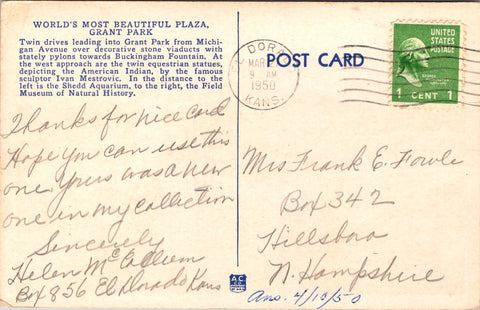 WORLD'S MOST BEAUTIFUL PLAZA,
GRANT PARK
Twin drives leading into Grant Park from Michi-
gan Avenue over decorative stone viaducts with
stately pylons towards Buckingham Fountain. At
the west approach are the twin equestrian statues,
depicting the American Indian, by the famous
sculptor Ivan Mestrovic. In the distance to the
left is the Shedd Aquarium, to the right, the Field
Museum of Natural History.
Thanks for nice card
Hope you can use this
one. Yours was a new
one in my collection
Sincerely
Helen McCallum
Box 856 El Dorado Kans
POST CARD
EL DORA
MAR
9 AM
1950
KANS.
UNITED
STATES
POSTAGE
1 CENT 1
Mrs Frank E. Fowle
Box 342
Hillsboro
N. Hampshire
Ans. 4/10/50
AC
CO